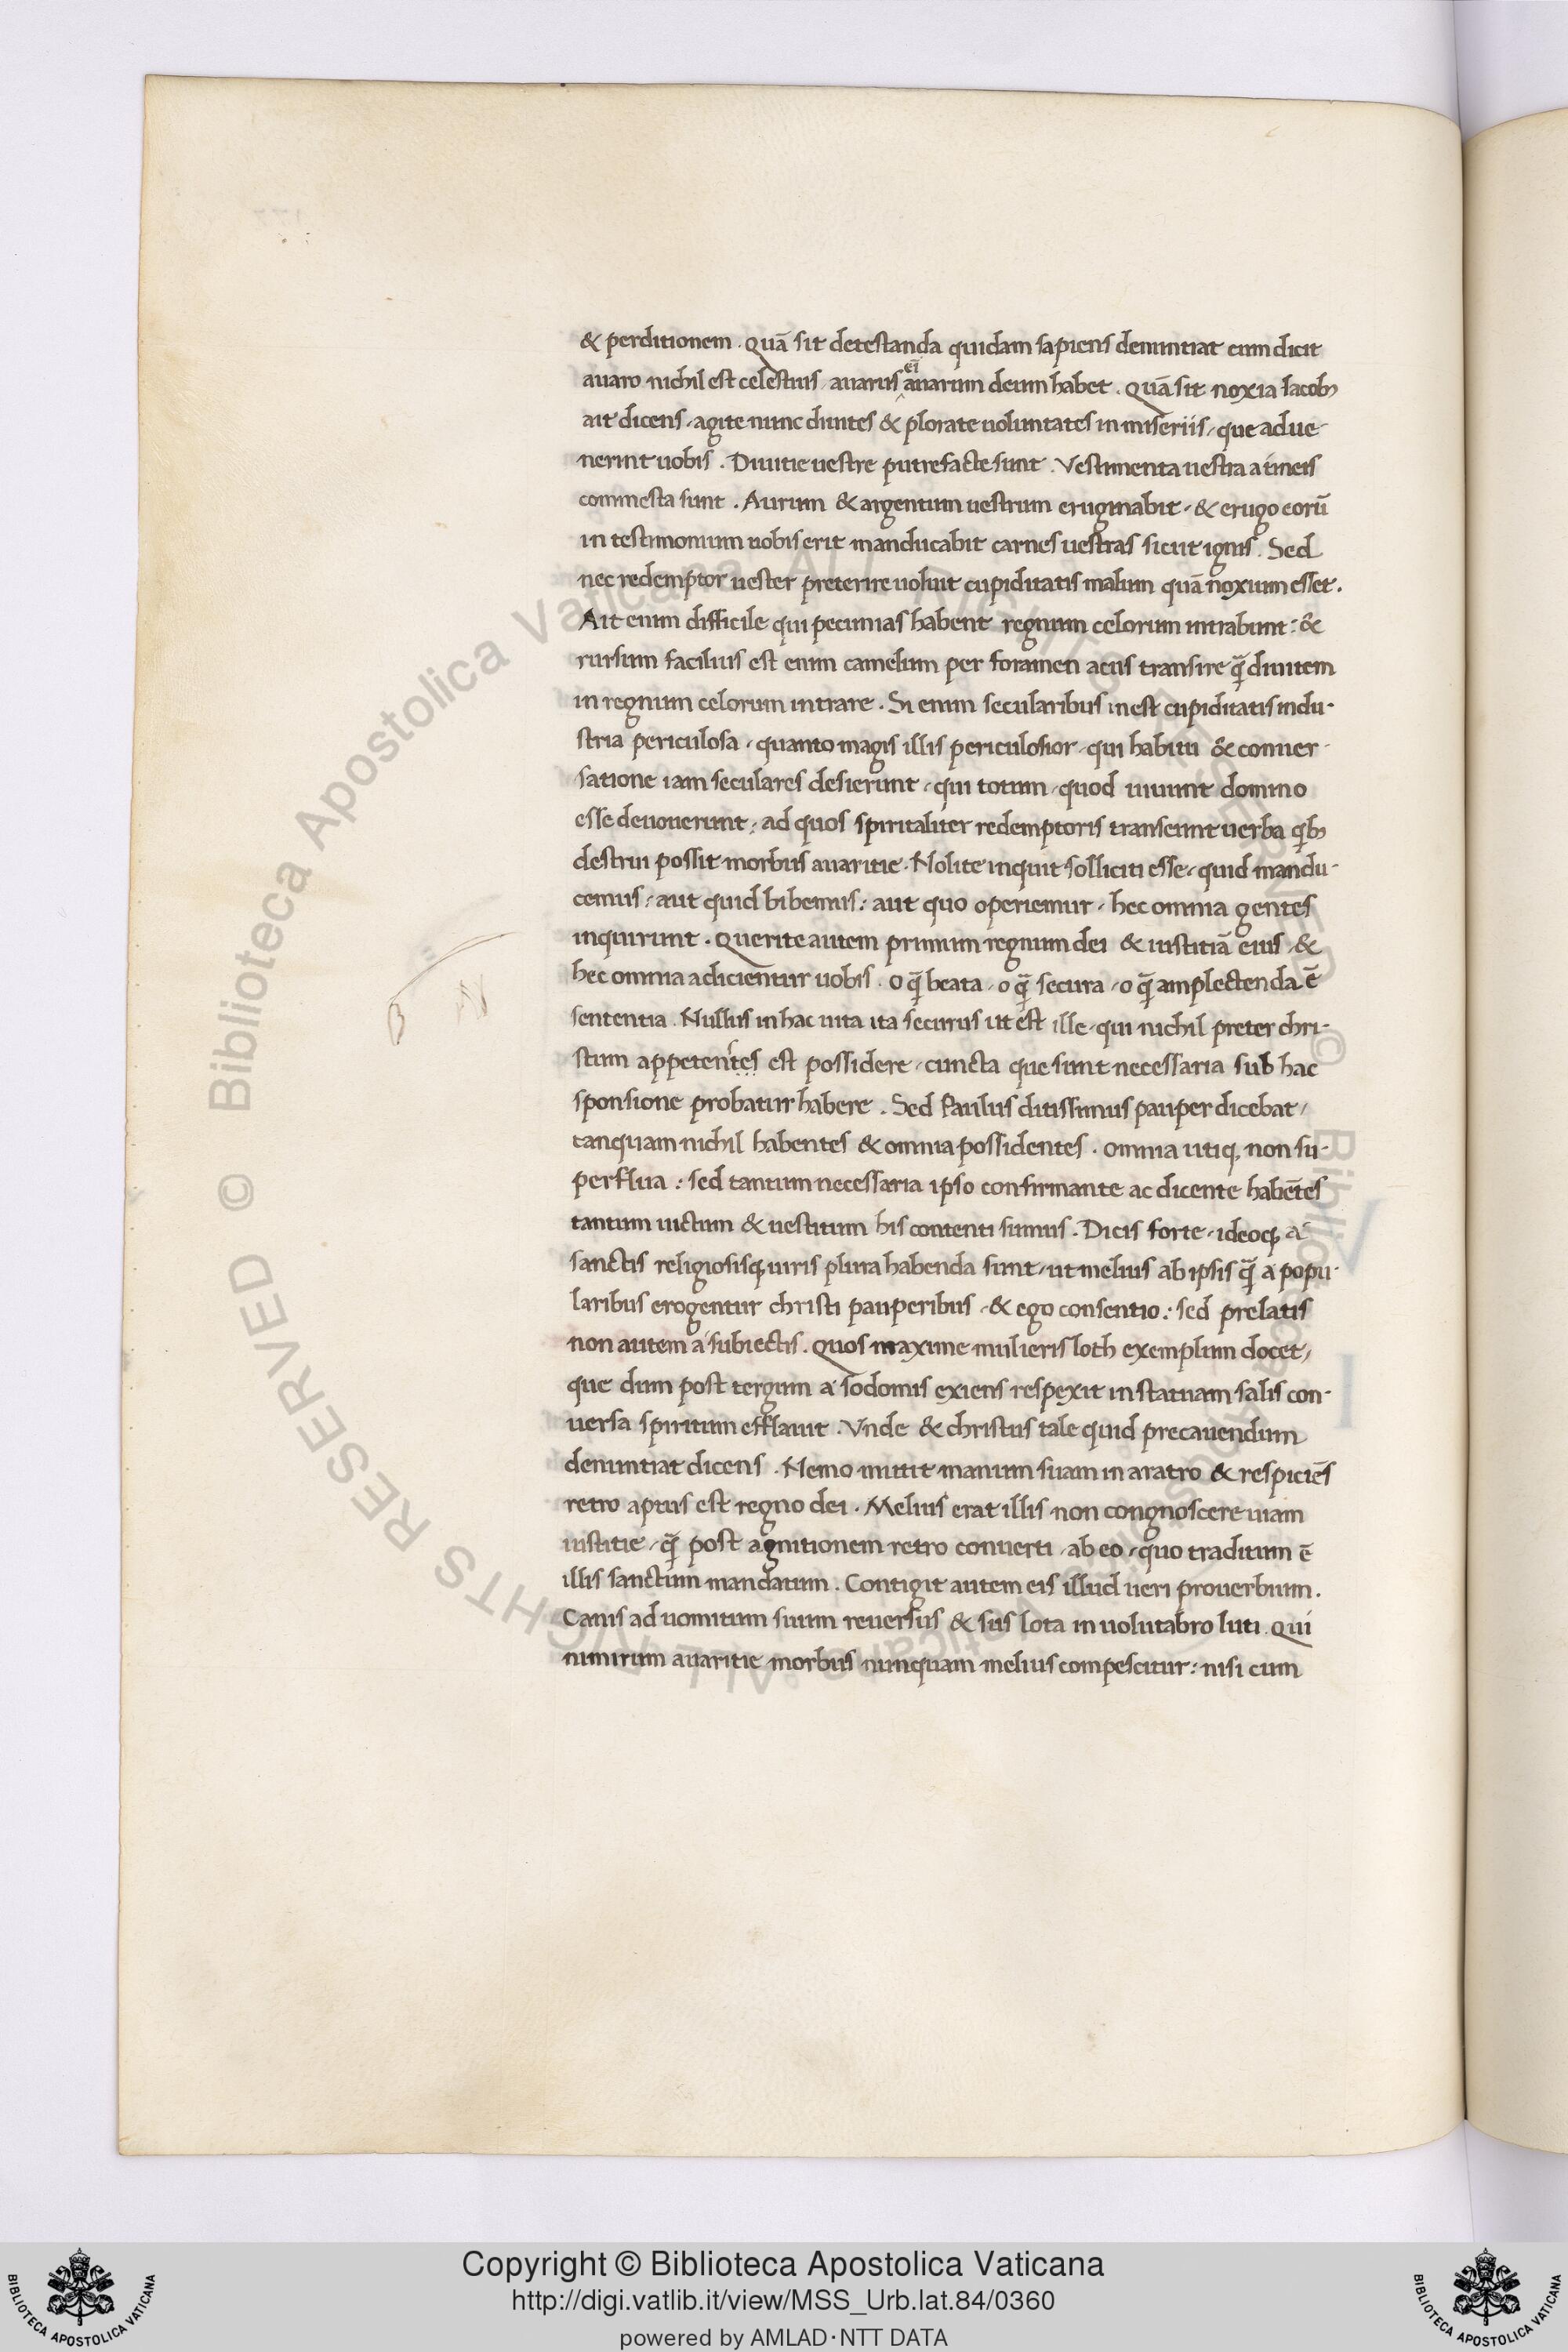 & perditionem. Quā sit detestanda quidam sapiens denuntiat cum dicit
avaro nichil est celestius avarus eī avarum deum habet. Quā sit noxia Iacobꝫ
ait dicens, agite nunc divites & plorate voluntates in miseriis, que adve-
nerint vobis. Divitie vestre putrefacte sunt. Vestimenta vestra a tineis
commesta sunt. Aurum & argentum vestrum eruginabit, & erugo eorū
in testimonium vobis erit manducabit carnes vestras sicut ignis. Sed
nec redemptor vester preterire voluit cupiditatis malum quā noxium esset.
Ait enim difficile qui pecunias habent regnum celorum intrabunt: &
rursum facilius est enim camelum per foramen acus transire q̄ divitem
in regnum celorum intrare. Si enim secularibus inest cupiditatis indu-
stria periculosa, quanto magis illis periculosior, qui habitu & conver-
satione iam seculares desierunt, qui totum, quod vivunt domino
esse devoverunt, ad quos spiritaliter redemptoris transeunt verba qbꝫ
destrui possit morbus avaritie. Nolite inquit solliciti esse, quid mandu-
cemus, aut quid bibemus: aut quo operiemur, hec omnia gentes
inquirunt. Querite autem primum regnum dei & iustitiā eius, &
hec omnia adicientur vobis. o q̄ beata, o q̄ secura, o q̄ amplectenda ē
sententia. Nullus in hac vita ita securus ut est ille, qui nichil preter chri-
stum appetentes est possidere, cuncta que sunt necessaria sub hac
sponsione probatur habere. Sed Paulus ditissimus pauper dicebat,
tanquam nichil habentes & omnia possidentes. omnia utiqꝫ non su-
perflua: sed tantum necessaria ipso confirmante ac dicente habētes
tantum victum & vestitum his contenti sumus. Dicis forte, ideoqꝫ a
sanctis religiosisqꝫ viris plura habenda sunt, ut melius ab ipsis q̄ a popu-
laribus erogentur christi pauperibus, & ego consentio: sed prelatis
non autem a subiectis. Quos maxime mulieris loth exemplum docet,
que dum post tergum a sodomis exiens respexit in statuam salis con-
versa spiritum efflavit. Unde & christus tale quid precavendum
denuntiat dicens. Nemo mittit manum suam in aratro & respiciēs
retro aptus est regno dei. Melius erat illis non congnoscere viam
iustitie, q̄ post agnitionem retro converti, ab eo, quo traditum ē
illis sanctum mandatum. Contigit autem eis illud veri proverbium.
Canis ad vomitum suum reversus & sus lota in volutabro luti. Qui
nimirum avaritie morbus nunquam melius compescitur: nisi cum
Copyright © Biblioteca Apostolica Vaticana
http://digi.vatlib.it/view/MSS_Urb.lat.84/0360
powered by AMLAD·NTT DATA
BIBLIOTECA APOSTOLICA VATICANA
BIBLIOTECA APOSTOLICA VATICANA
© Biblioteca Apostolica Vaticana ALL RIGHTS RESERVED
© Biblioteca Apostolica Vaticana ALL RIGHTS RESERVED